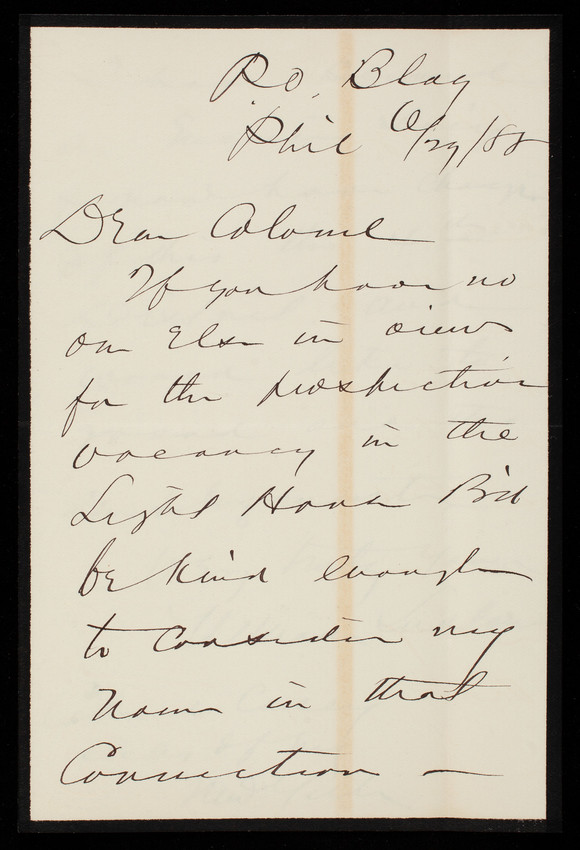 P.O. Bldg
Phil 6/29/88
Dear Colonel
If you have no
one Else in view
for the prospective
vacancy in the
Light House B'd
be kind enough
to Consider my
name in that
Connection —